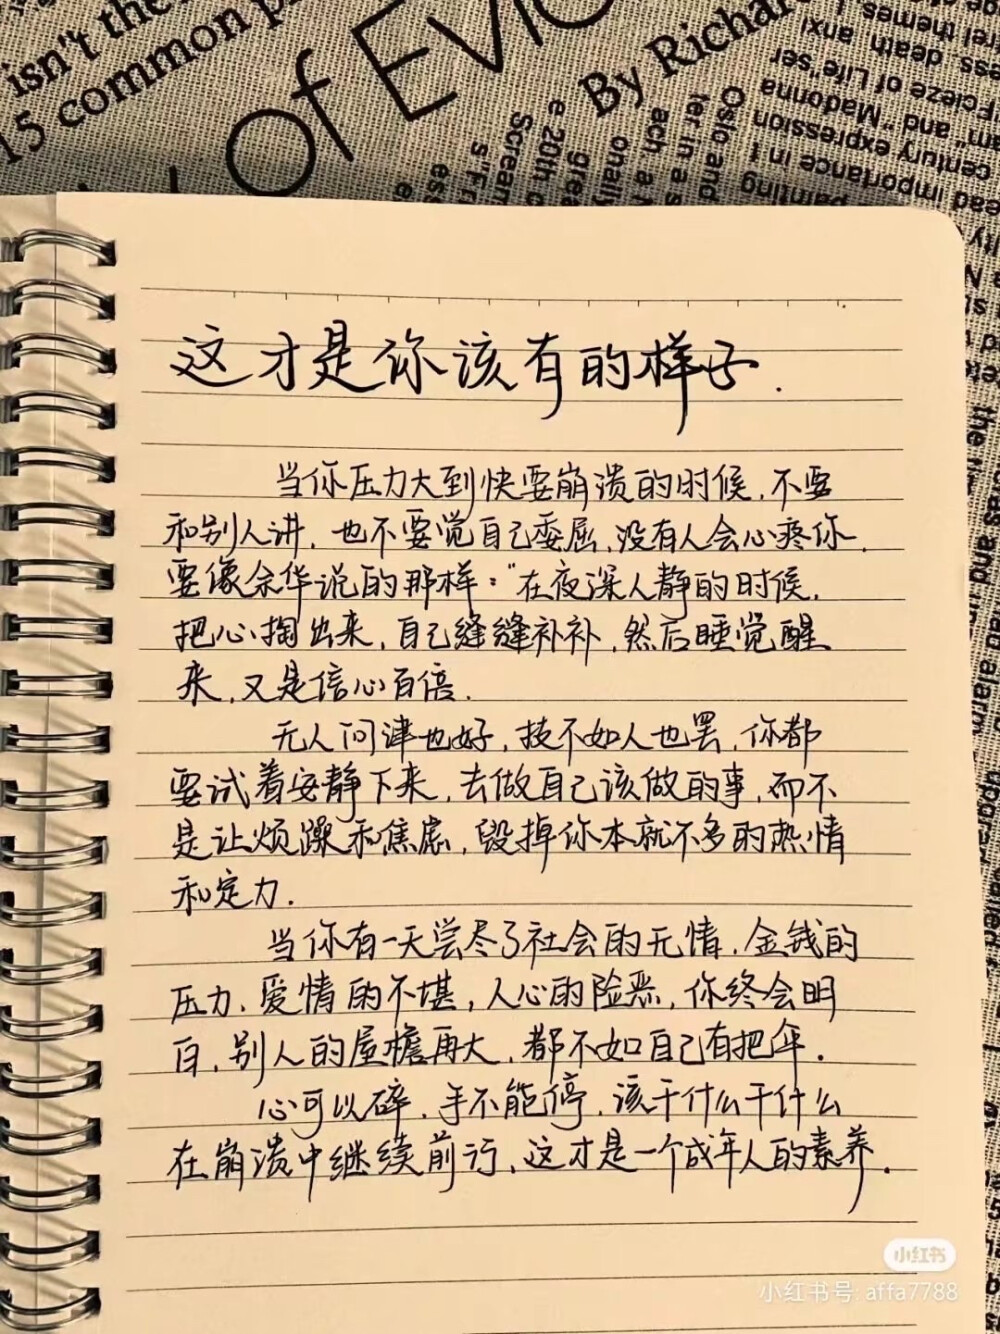 isn't the
15 common p
of Evi
By Richar
这才是你该有的样子.
当你压力大到快要崩溃的时候,不要
和别人讲,也不要觉自己委屈,没有人会心疼你.
要像余华说的那样:"在夜深人静的时候,
把心掏出来,自己缝缝补补,然后睡觉醒
来,又是信心百倍.
无人问津也好,技不如人也罢,你都
要试着安静下来,去做自己该做的事,而不
是让烦躁和焦虑,毁掉你本就不多的热情
和定力.
当你有一天尝尽了社会的无情,金钱的
压力、爱情的不堪,人心的险恶,你终会明
白,别人的屋檐再大,都不如自己有把伞.
心可以碎,手不能停,该干什么干什么
在崩溃中继续前行,这才是一个成年人的素养.
小红书
小红书号: affa7788